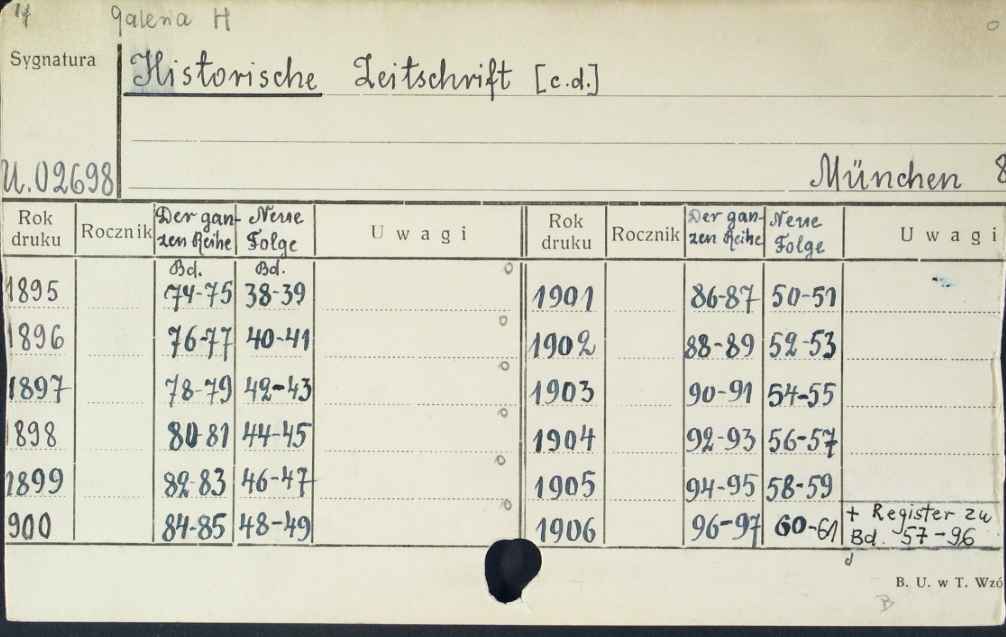 galeria H
Sygnatura
Historische Zeitschrift [c.d.]
U.02698
München 8
Rok druku Rocznik Der ganzen Reihe Neue Folge Uwagi Rok druku Rocznik Der ganzen Reihe Neue Folge Uwagi
Bd. Bd.
1895 74-75 38-39 1901 86-87 50-51
1896 76-77 40-41 1902 88-89 52-53
1897 78-79 42-43 1903 90-91 54-55
1898 80-81 44-45 1904 92-93 56-57
1899 82-83 46-47 1905 94-95 58-59
900 84-85 48-49 1906 96-97 60-61 + Register zu
Bd. 57-96
d
B. U. w T. Wzó
B